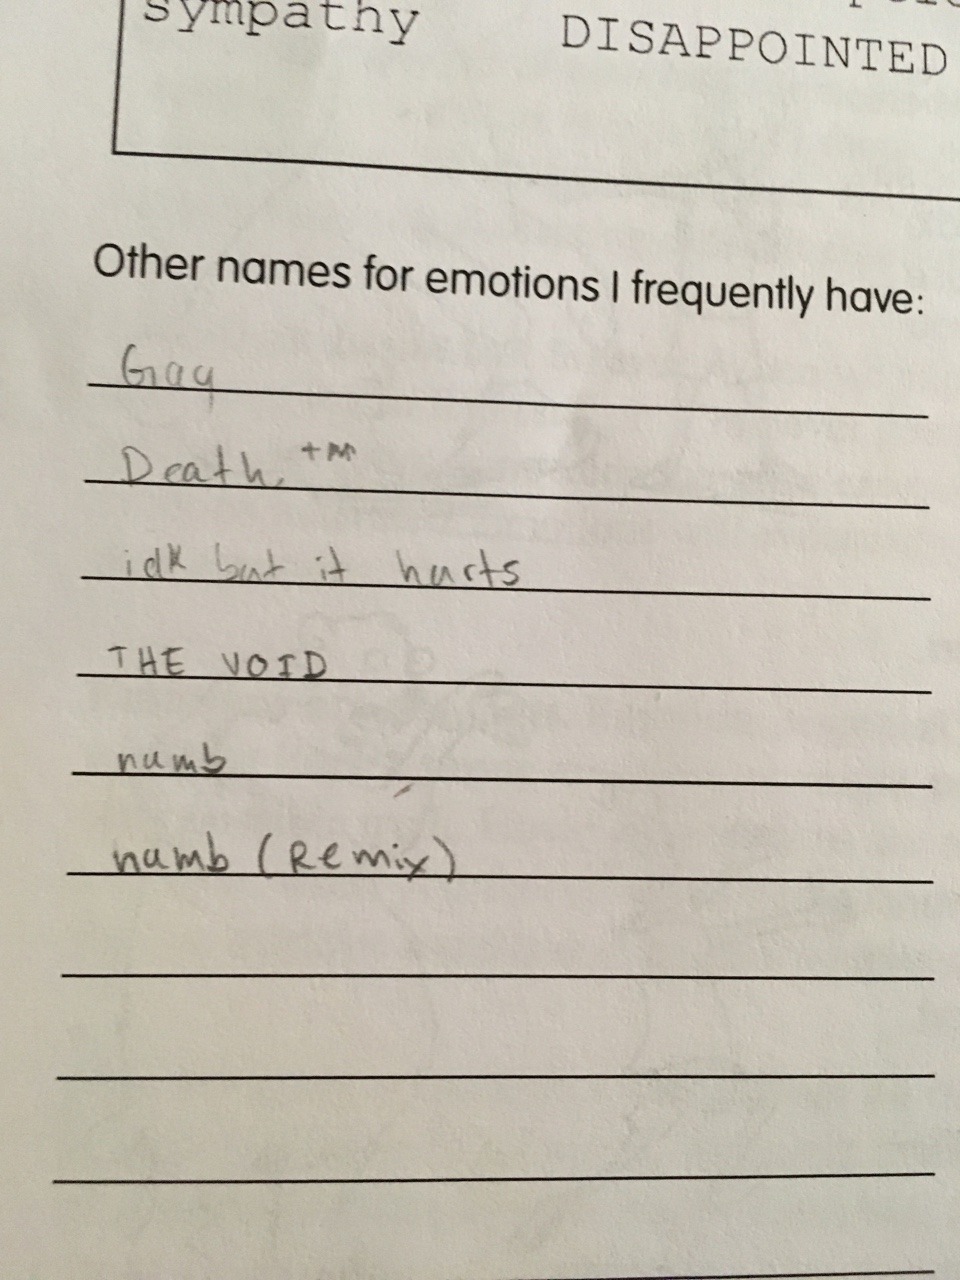 sympathy DISAPPOINTED
Other names for emotions I frequently have:
Gay
Death. ™
idk but it hurts
THE VOID
numb
numb (Remix)